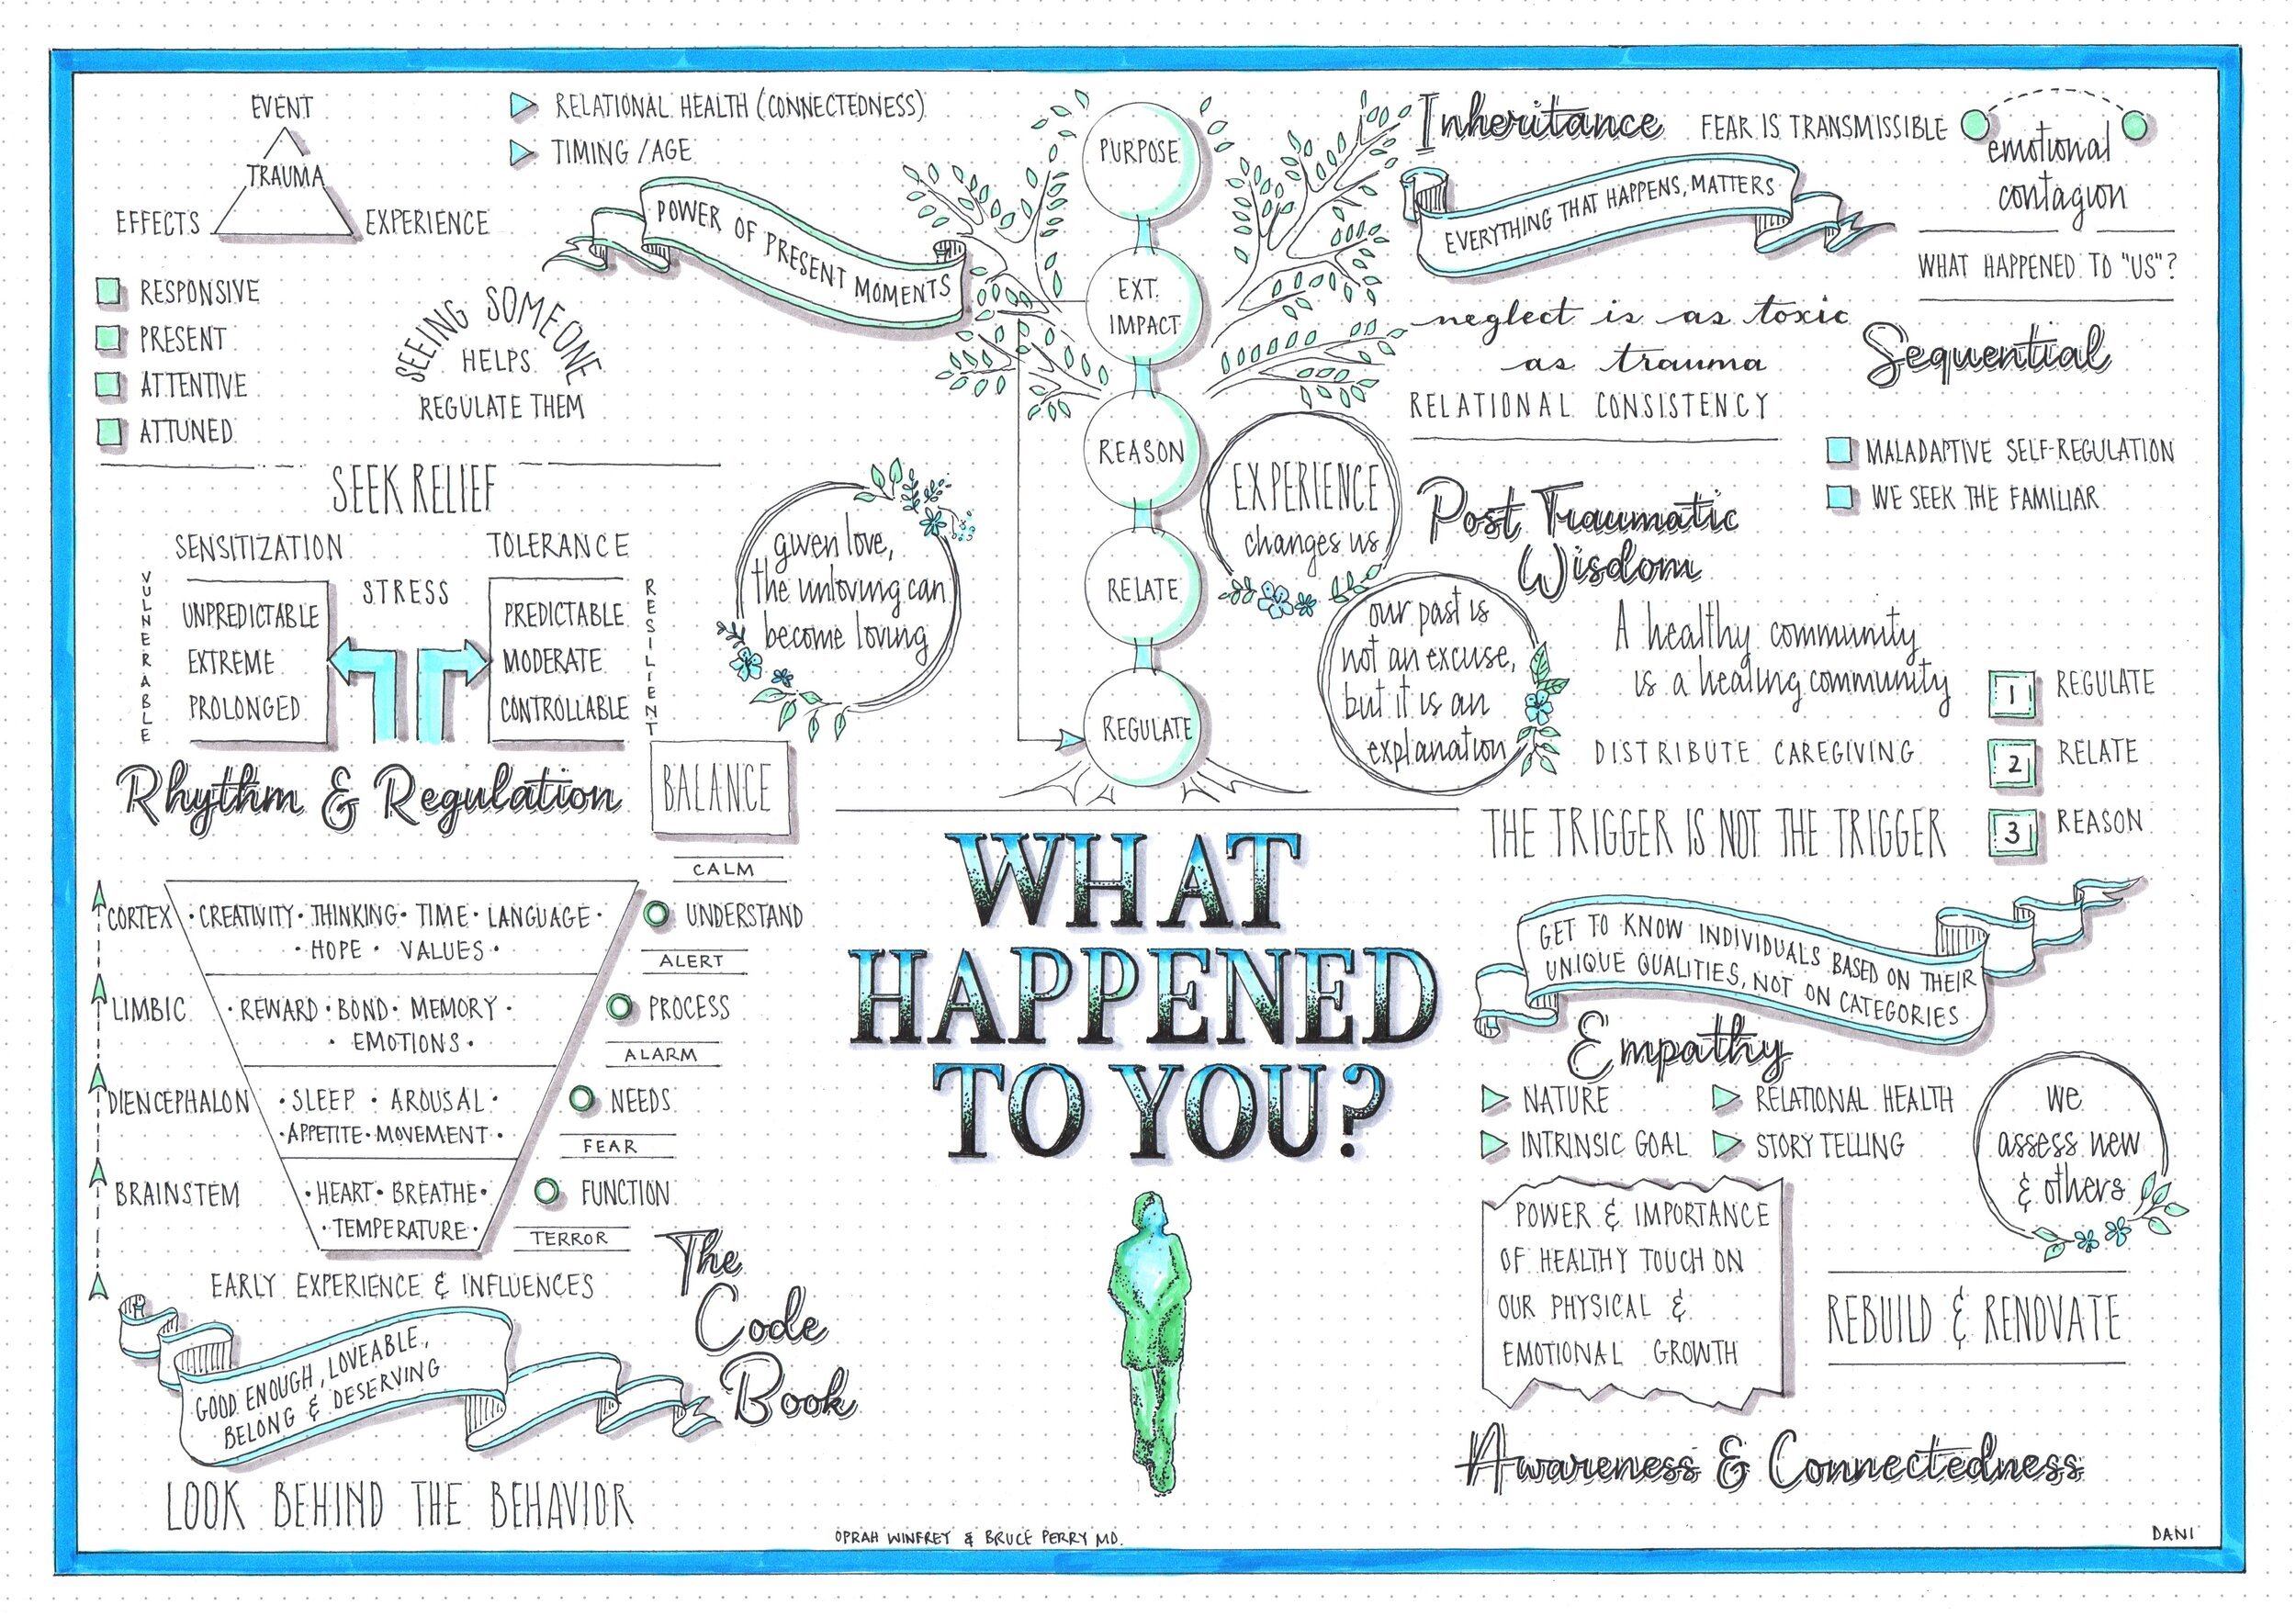 EVENT
TRAUMA
EFFECTS
EXPERIENCE
RELATIONAL HEALTH (CONNECTEDNESS)
TIMING / AGE
POWER OF PRESENT MOMENTS
RESPONSIVE
PRESENT
ATTENTIVE
ATTUNED
SEEING SOMEONE
HELPS
REGULATE THEM
SEEK RELIEF
SENSITIZATION
TOLERANCE
STRESS
VULNERABLE
UNPREDICTABLE
EXTREME
PROLONGED
PREDICTABLE
MODERATE
CONTROLLABLE
RESILIENT
Rhythm & Regulation
BALANCE
given love,
the unloving can
become loving
PURPOSE
EXT.
IMPACT
REASON
RELATE
REGULATE
EXPERIENCE
changes us
our past is
not an excuse,
but it is an
explanation
Inheritance
FEAR IS TRANSMISSIBLE
emotional
contagion
EVERYTHING THAT HAPPENS, MATTERS
WHAT HAPPENED TO "US"?
neglect is as toxic
as trauma
RELATIONAL CONSISTENCY
Sequential
MALADAPTIVE SELF-REGULATION
WE SEEK THE FAMILIAR
Post Traumatic
Wisdom
A healthy community
is a healing community
DISTRIBUTE CAREGIVING
1 REGULATE
2 RELATE
3 REASON
THE TRIGGER IS NOT THE TRIGGER
CALM
CORTEX
• CREATIVITY • THINKING • TIME • LANGUAGE •
• HOPE • VALUES •
UNDERSTAND
ALERT
LIMBIC
• REWARD • BOND • MEMORY •
• EMOTIONS •
PROCESS
ALARM
DIENCEPHALON
• SLEEP • AROUSAL •
• APPETITE • MOVEMENT •
NEEDS
FEAR
BRAINSTEM
• HEART • BREATHE •
• TEMPERATURE •
FUNCTION
TERROR
EARLY EXPERIENCE & INFLUENCES
The
Code
Book
GOOD ENOUGH, LOVEABLE,
BELONG & DESERVING
LOOK BEHIND THE BEHAVIOR
WHAT
HAPPENED
TO YOU?
OPRAH WINFREY & BRUCE PERRY MD.
GET TO KNOW INDIVIDUALS BASED ON THEIR
UNIQUE QUALITIES, NOT ON CATEGORIES
Empathy
NATURE
RELATIONAL HEALTH
INTRINSIC GOAL
STORY TELLING
we
assess new
& others
POWER & IMPORTANCE
OF HEALTHY TOUCH ON
OUR PHYSICAL &
EMOTIONAL GROWTH
REBUILD & RENOVATE
Awareness & Connectedness
DANI